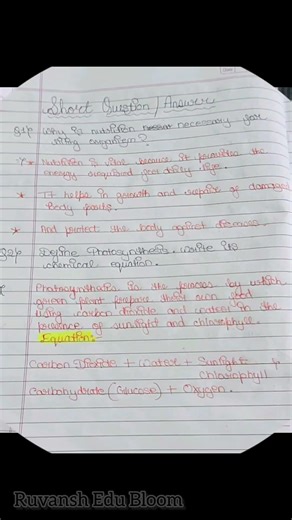 Short Question/Answer
Q1) Why is nutrition necessary for
living organism?
* Nutrition is vital because it provides the
energy required for daily life.
* It helps in growth and repair of damaged
body parts.
* And protect the body against diseases.
Q2) Define Photosynthesis. Write its
chemical equation.
Photosynthesis is the process by which
green plant prepare their own food
using carbon dioxide and water in the
presence of sunlight and chlorophyll.
Equation:
Carbon Dioxide + Water + Sunlight +
Chlorophyll
Carbohydrate (Glucose) + Oxygen.
Ruvansh Edu Bloom